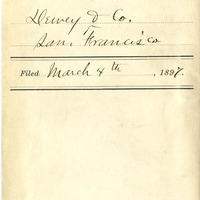 Dewey & Co.
San Francisco
Filed March 4th, 1897.